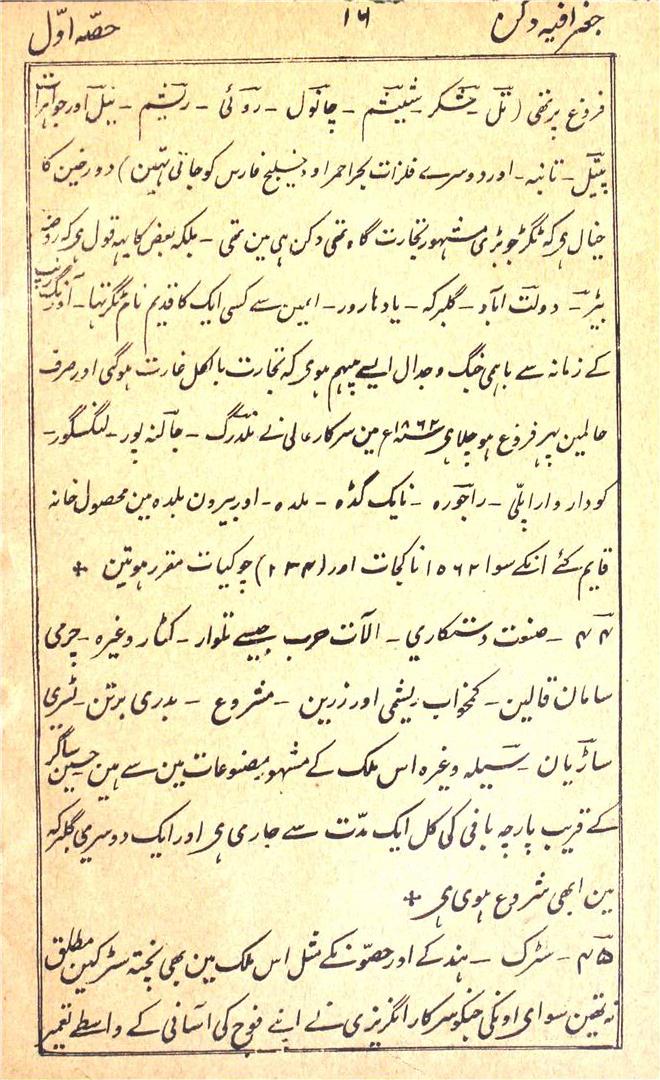 جغرافیہ دکن ۱۶ حصّہ اوّل
فروغ پر تھی (تل - شکر - شیشم - چانول - روئی - ریشم - نیل اور جواہرات
پیتل - تانبہ - اور دوسرے فلزات بحر احمر اور خلیج فارس کو جاتی تہین) مورخین کا
خیال ہی کہ ٹگر جو بڑی مشہور تجارت گاہ تھی دکن ہی مین تھی - بلکہ بعض کا یہہ قول ہی کہ روضہ
بیڑ - دولت آباد - گلبرگہ - یا دہارور - انمین سے کسی ایک کا قدیم نام ٹگر تہا - اورنگ زیب
کے زمانہ سے باہمی جنگ و جدال ایسے پیہم ہوی کہ تجارت بالکل غارت ہوگئی اور صرف
حالمین پہر فروغ ہو چلا ہی سنہ ۱۸۶۲ع مین سرکار عالی نے نلدرگ - جالنہ پور - لنگسگور -
کودار وارا پلّی - راجورہ - نایک گڈہ - بلدہ - اور بیرون بلدہ مین محصول خانہ
قایم کئے انکے سوا ۱۵۶۲ ناکجات اور (۲۳۴) چوکیات مقرر ہوئین +
۴۴ - صنعت دستکاری - الآت حرب جیسے تلوار - کٹار وغیرہ - چرمی
سامان قالین - کمخواب ریشمی اور زرین - مشروع - بدری برتن - ٹسری
ساڑیان - سیلہ وغیرہ اس ملک کے مشہور مصنوعات مین سے ہین حسین ساگر
کے قریب پارچہ بافی کی کل ایک مدّت سے جاری ہی اور ایک دوسری گلبرگہ
مین ابھی شروع ہوی ہی +
۴۵ - سڑک - ہند کے اور حصّونکے مثل اس ملک مین بھی پختہ سڑکین مطلق
نہ تھین سوای اونکی جنکو سرکار انگریزی نے اپنے فوج کی آسانی کے واسطے تعمیر